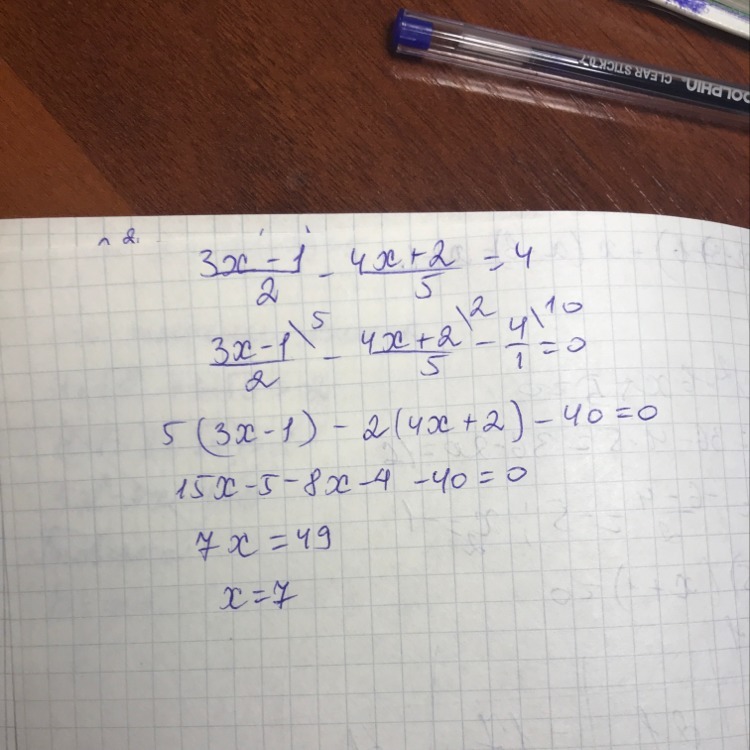 DOLPHIN CLEAR STICK 0.7
n 2.
(3x-1)/2 - (4x+2)/5 = 4
(3x-1)/2 \5 - (4x+2)/5 \2 - 4/1 \10 = 0
5(3x-1) - 2(4x+2) - 40 = 0
15x-5-8x-4 -40=0
7x=49
x=7